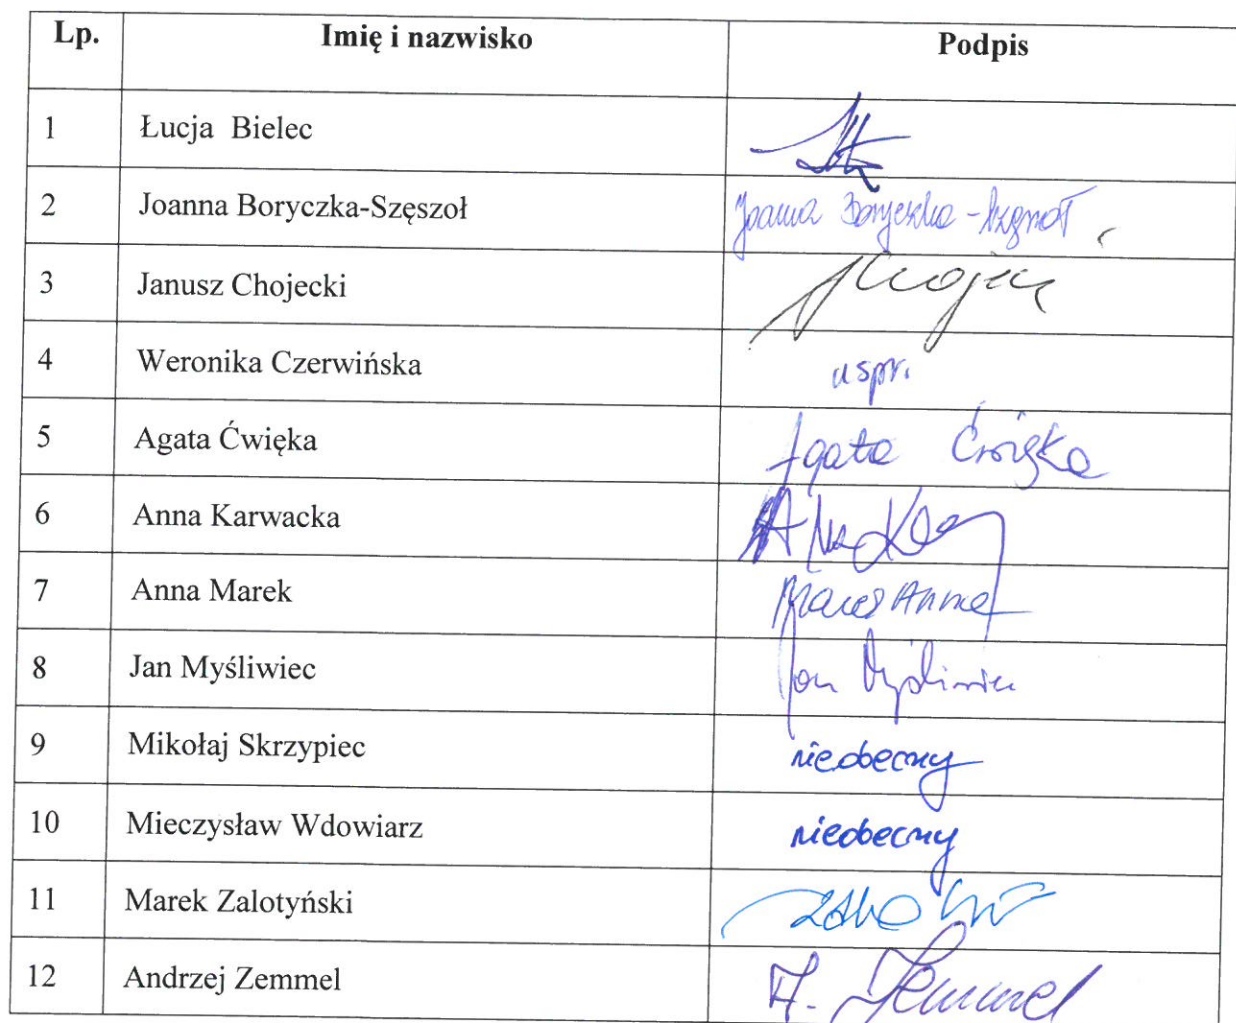 Lp. Imię i nazwisko Podpis
1 Łucja Bielec
2 Joanna Boryczka-Szęszoł Joanna Boryczka-
3 Janusz Chojecki
4 Weronika Czerwińska uspr.
5 Agata Ćwięka Agata Ćwięka
6 Anna Karwacka
7 Anna Marek Marek Anna
8 Jan Myśliwiec Jan Myśliwiec
9 Mikołaj Skrzypiec niedbecny
10 Mieczysław Wdowiarz niedbecny
11 Marek Zalotyński
12 Andrzej Zemmel A. Zemmel